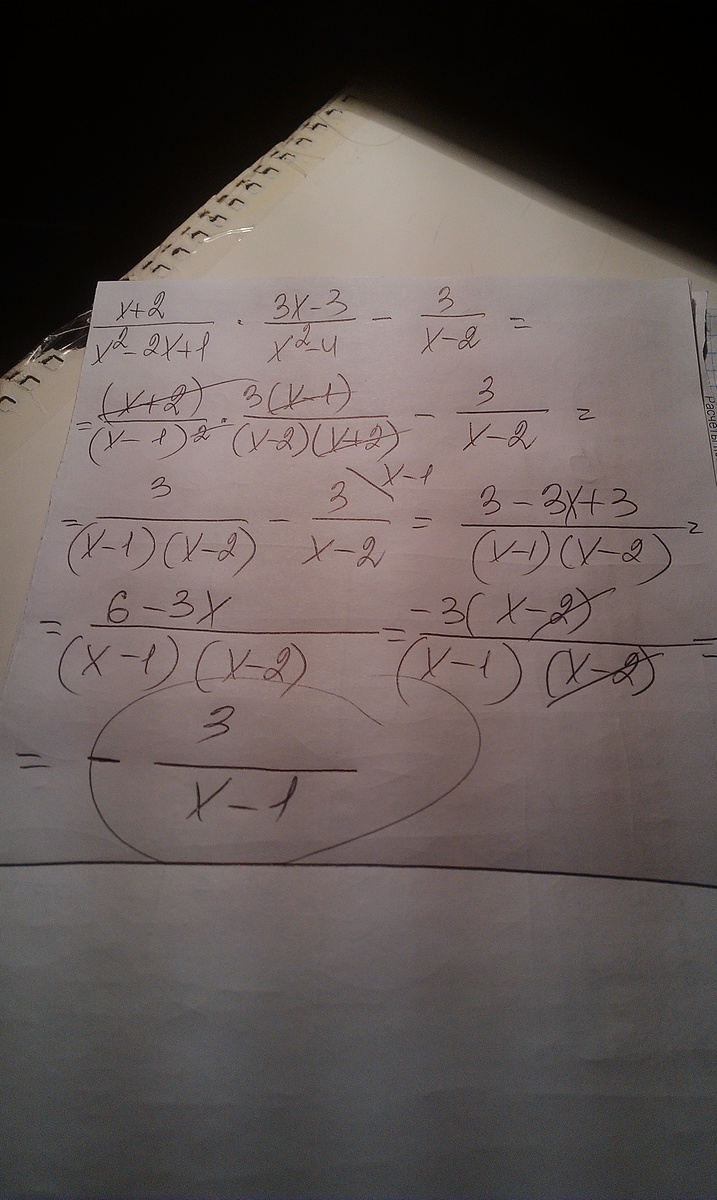 (x+2)/(x²-2x+1) · (3x-3)/(x²-4) - 3/(x-2) =
= (x+2)/(x-1)² · 3(x-1)/((x-2)(x+2)) - 3/(x-2) =
= 3/((x-1)(x-2)) - 3\x-1/(x-2) = (3-3x+3)/((x-1)(x-2)) =
= (6-3x)/((x-1)(x-2)) = -3(x-2)/((x-1)(x-2)) =
= - 3/(x-1)